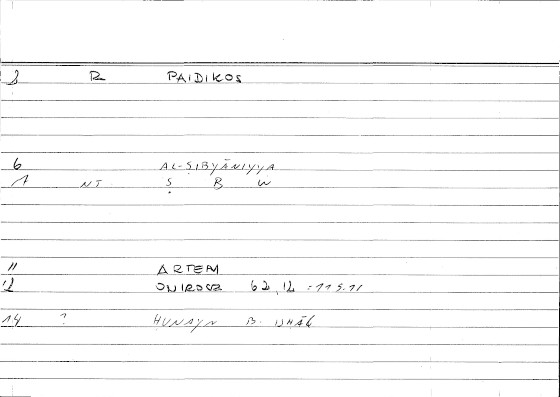 2 R PAIDIKOS
6 AL-ṢIBYĀNIYYA
1 NT Ṣ B W
11 ARTEM
12 ONIROCR 62,12 = 115.11
14 ? ḤUNAYN B. ISḤĀḲ